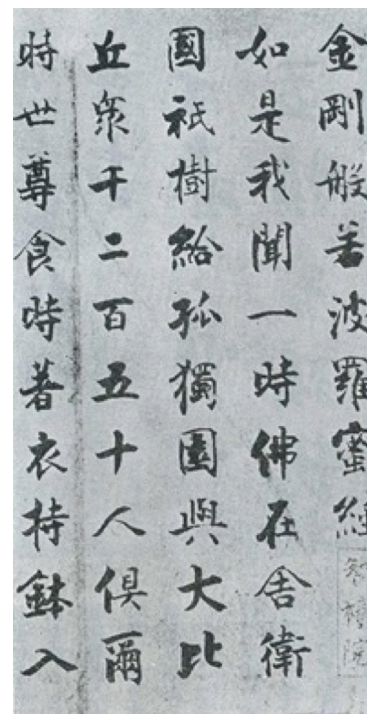 金剛般若波羅蜜經
如是我聞一時佛在舍衛
國祇樹給孤獨園與大比
丘眾千二百五十人俱爾
時世尊食時著衣持鉢入